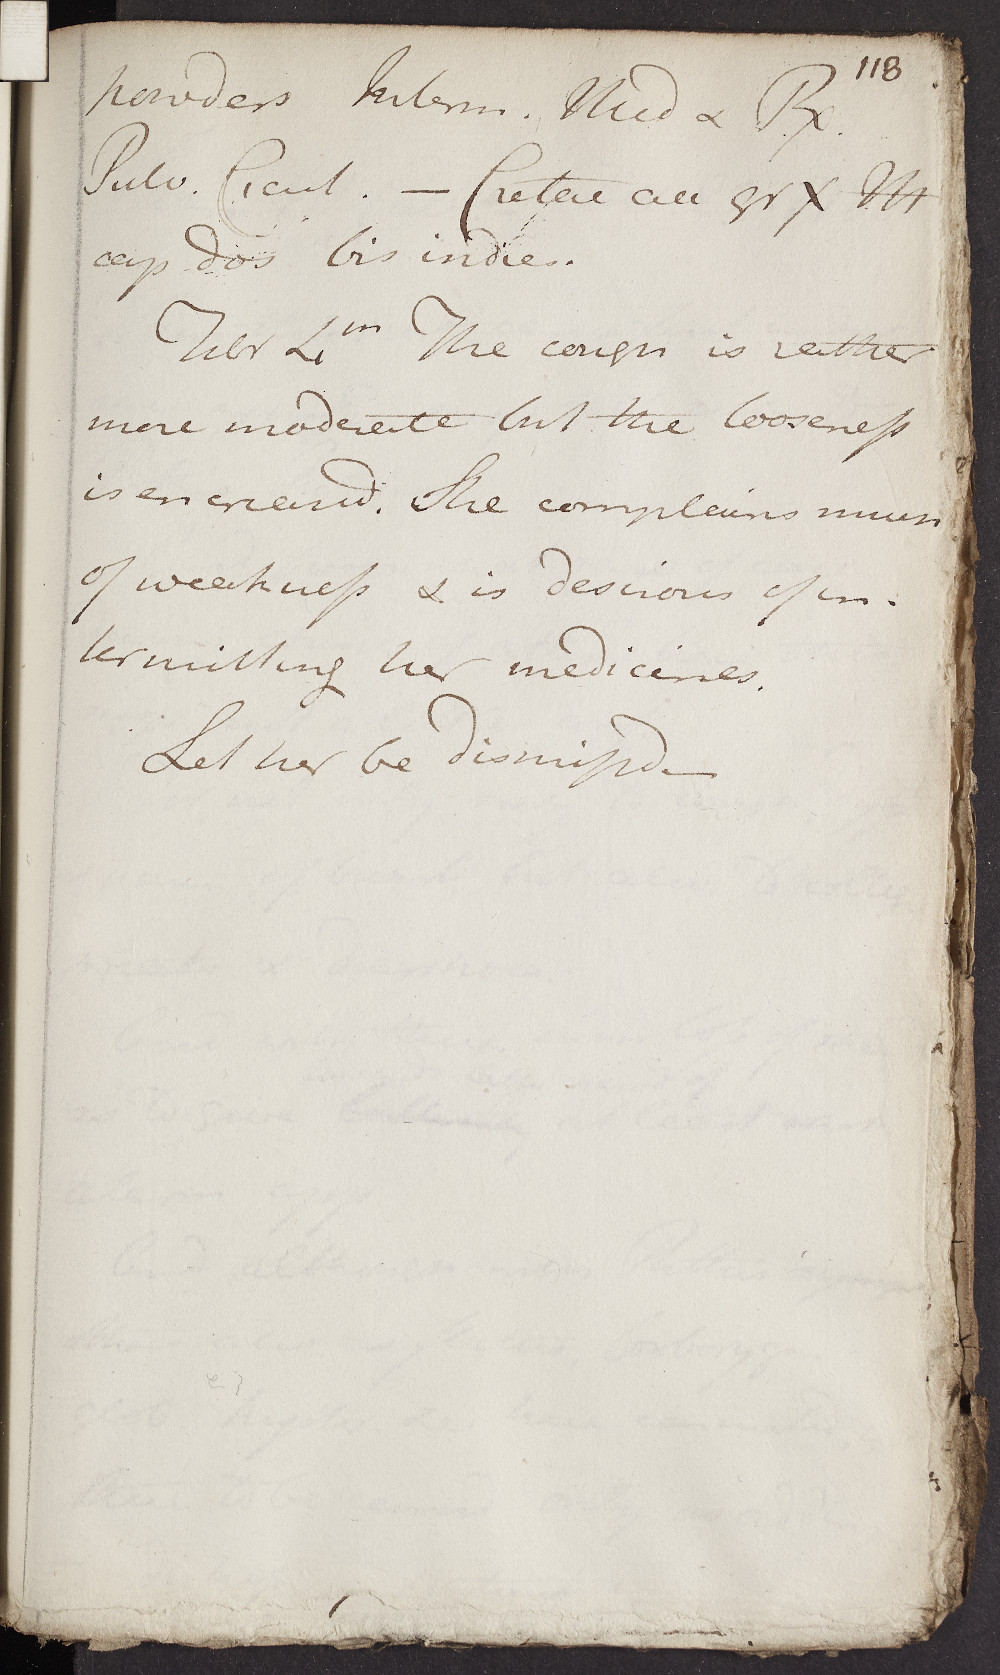 118
powders Interm. Med & Rx.
Pulv. Cicut. — Cretae aa gr X M
cap dos bis indies.
Febr 4th The cough is rather
more moderate but the looseness
is encreasd. She complains much
of weakness & is desirous of in-
termitting her medicines.
Let her be dismissd —